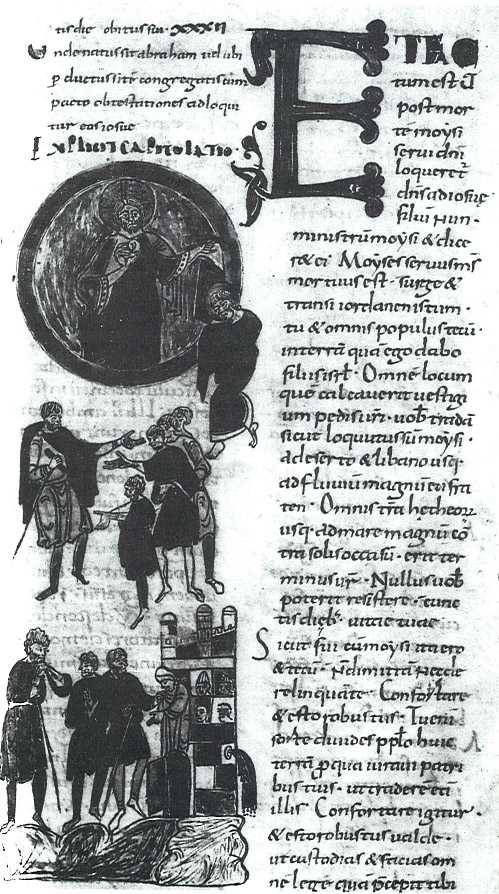 tisdie obitus sui · XXXII
nde natus sit abraham vel ubi
pacto obtestationes adloqui
tur eos iosue
Explicit capitulatio
ET FAC
tum est ut
post mor
tē moysi
servi dni
loqueret
dns ad iosue
filiū nun ·
ministrū moysi & dice
r& ei · Moyses servus ms
mortuus est · surge &
transi iordanen istum ·
tu & omnis populus tecū ·
in terrā quā ego dabo
filiis isrł · Omnē locum
quē calcaverit vestigi
um pedis vr̄i · vob̄ tradā
sicut loquutus sū moysi ·
a deserto & libano usq ·
ad fluvium magnū eufra
ten · Omnis tr̄a hetheoꝝ
usq · ad mare magnū cō
tra solis occasū · erit ter
minus vr̄ · Nullus vob̄
poterit resistere · cunc
tis dieb̄ · vitae tuae
Sicut fui cū moysi ita ero
& tecū · Ndimittā nec de
relinquā te · Confortare
& esto robustus · Tu eni
sorte divides pplo huic
terrā p qua iuravi patri
bus tuis · ut traderē eā
illis · Confortare igitur ·
& esto robustus valde ·
ut custodias & facias om
nē legē quā p̄cepit tibi